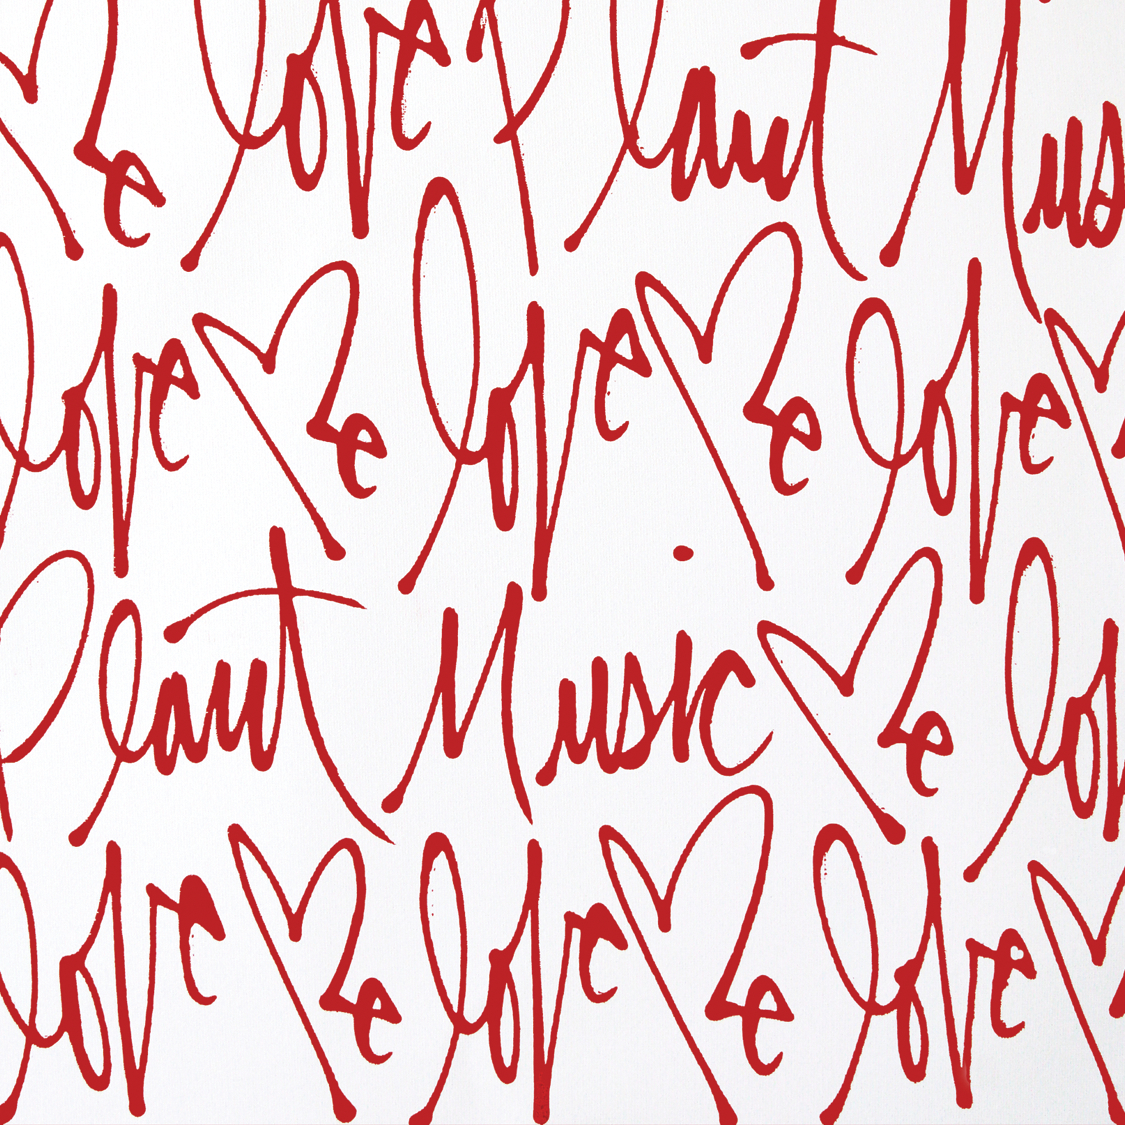 Me love Plant Mus
love Me love Me love M
Plant Music Me lov
love Me love Me love M